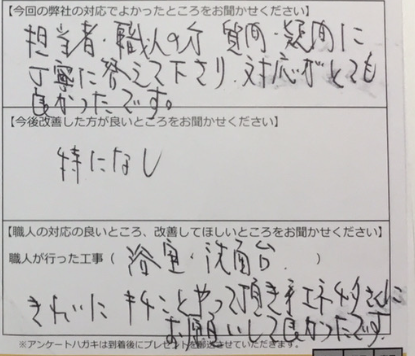 【今回の弊社の対応でよかったところをお聞かせください】
担当者・職人の方 質問・疑問に
丁寧に答えて下さり、対応がとても
良かったです。
【今後改善した方が良いところをお聞かせください】
特になし
【職人の対応の良いところ、改善してほしいところをお聞かせください】
職人が行った工事（ 浴室・洗面台 ）
きれいに キチンとやって頂き
お願いして良かったです。
※アンケートハガキは到着後にプレゼントを郵送させていただきます。